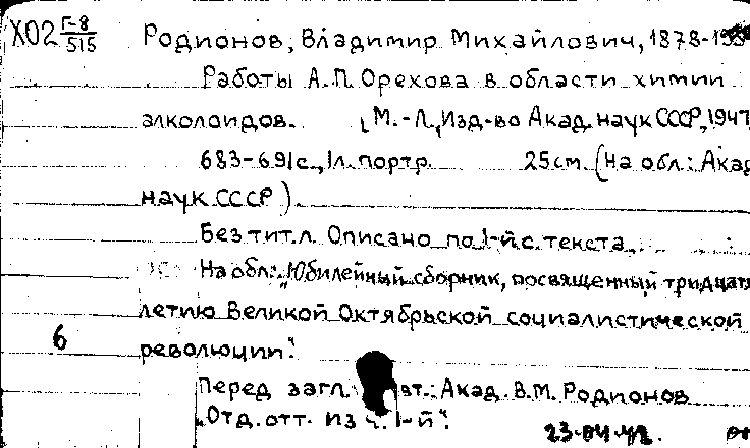 Х02 Г-8/515
Родионов, Владимир Михайлович, 1878-
Работы А.П. Орехова в области химии
алколоидов. [М.-Л., Изд-во Акад. наук СССР, 1947
683-691 с., 1 л. портр. 25 см. (На обл.: Акад
наук СССР).
Без тит. л. Описано по 1-й с. текста
На обл.: "Юбилейный сборник, посвященный тридцати
летию Великой Октябрьской социалистической
6
революции".
Перед загл. авт.: Акад. В.М. Родионов
"Отд. отт. из ч. 1-й".